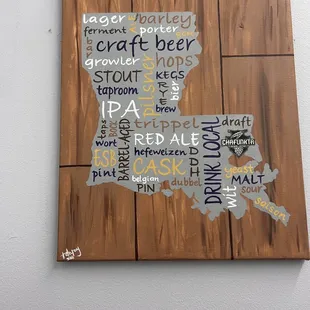 lager barley
ferment porter
craft beer
growler hops
STOUT KEGS
taproom pilsner RYE bier
IPA brew
taps BOCK trippel draft
wort BARREL-AGED RED ALE DRINK LOCAL CHAFUNKTA
ESB hefeweizen
pint CASK yeast
belgian MALT
PIN dubbel wit sour
saison